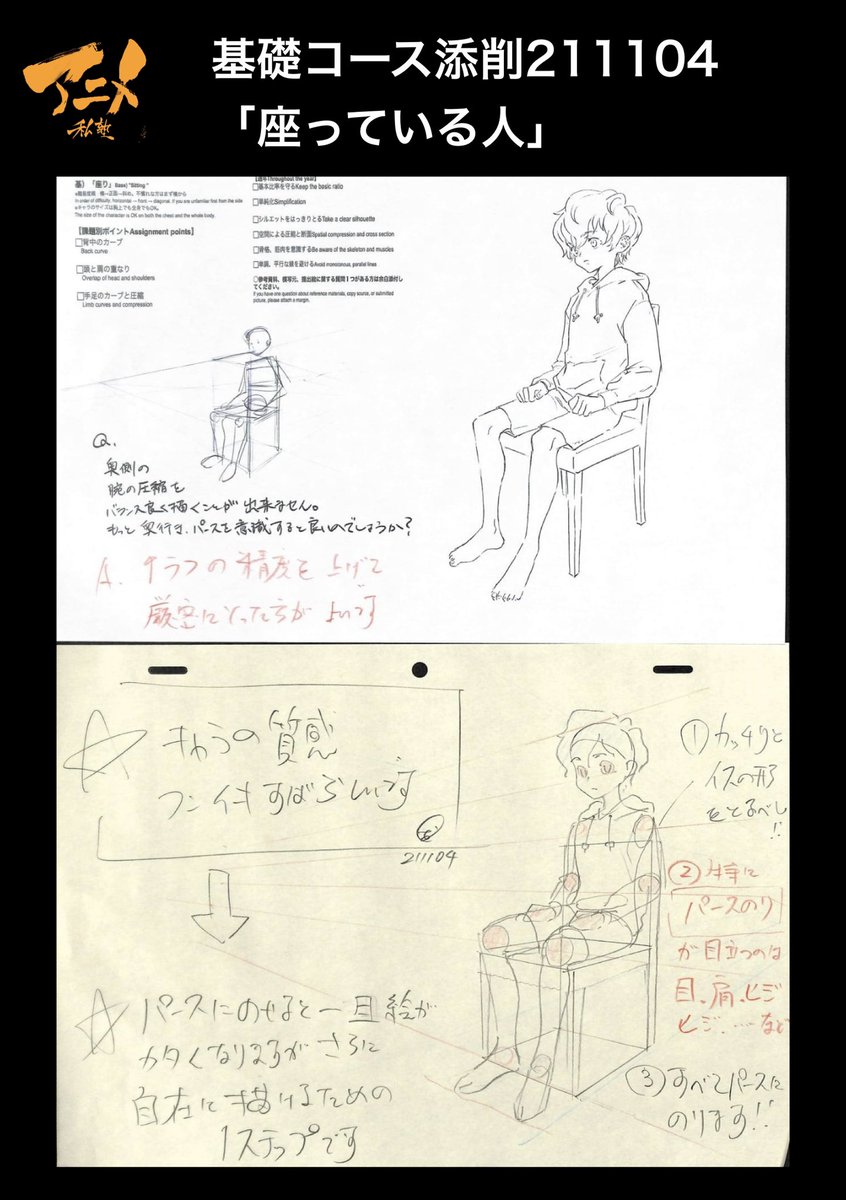 アニメ
私塾
基礎コース添削211104
「座っている人」
基)「座り」Base) "Sitting "
In order of difficulty, horizontal → front → diagonal. If you are unfamiliar first from the side
※キャラのサイズは胸上でも全身でもOK。
The size of the character is OK on both the chest and the whole body.
【課題別ポイントAssignment points】
□背中のカーブ
Back curve
□頭と肩の重なり
Overlap of head and shoulders
□手足のカーブと圧縮
Limb curves and compression
【通年Throughout the year】
□基本比率を守るKeep the basic ratio
□単純化Simplification
□シルエットをはっきりとるTake a clear silhouette
□空間による圧縮と断面Spatial compression and cross section
□骨格、筋肉を意識するBe aware of the skeleton and muscles
□単調、平行な線を避けるAvoid monotonous, parallel lines
○参考資料、模写元、提出絵に関する質問1つがある方は余白添付し
てください。
If you have one question about reference materials, copy source, or submitted
picture, please attach a margin.
Q.
奥側の
腕の圧縮を
バランス良く描くことが出来ません。
もっと奥行き、パースを意識すると良いのでしょうか?
A. ラフの精度を上げて
厳密にとった方がよいです
☆ きゃらの質感
フンイキすばらしいです
211104
☆ パースにのせると一旦絵が
カタくなりますが さらに
自在に描けるための
1ステップです
①カッチリと
イスの形
をとるべし!!
②特に
パースのり
が目立つのは
目、肩、ヒジ
ヒジ、……など
③すべてパースに
のります!!